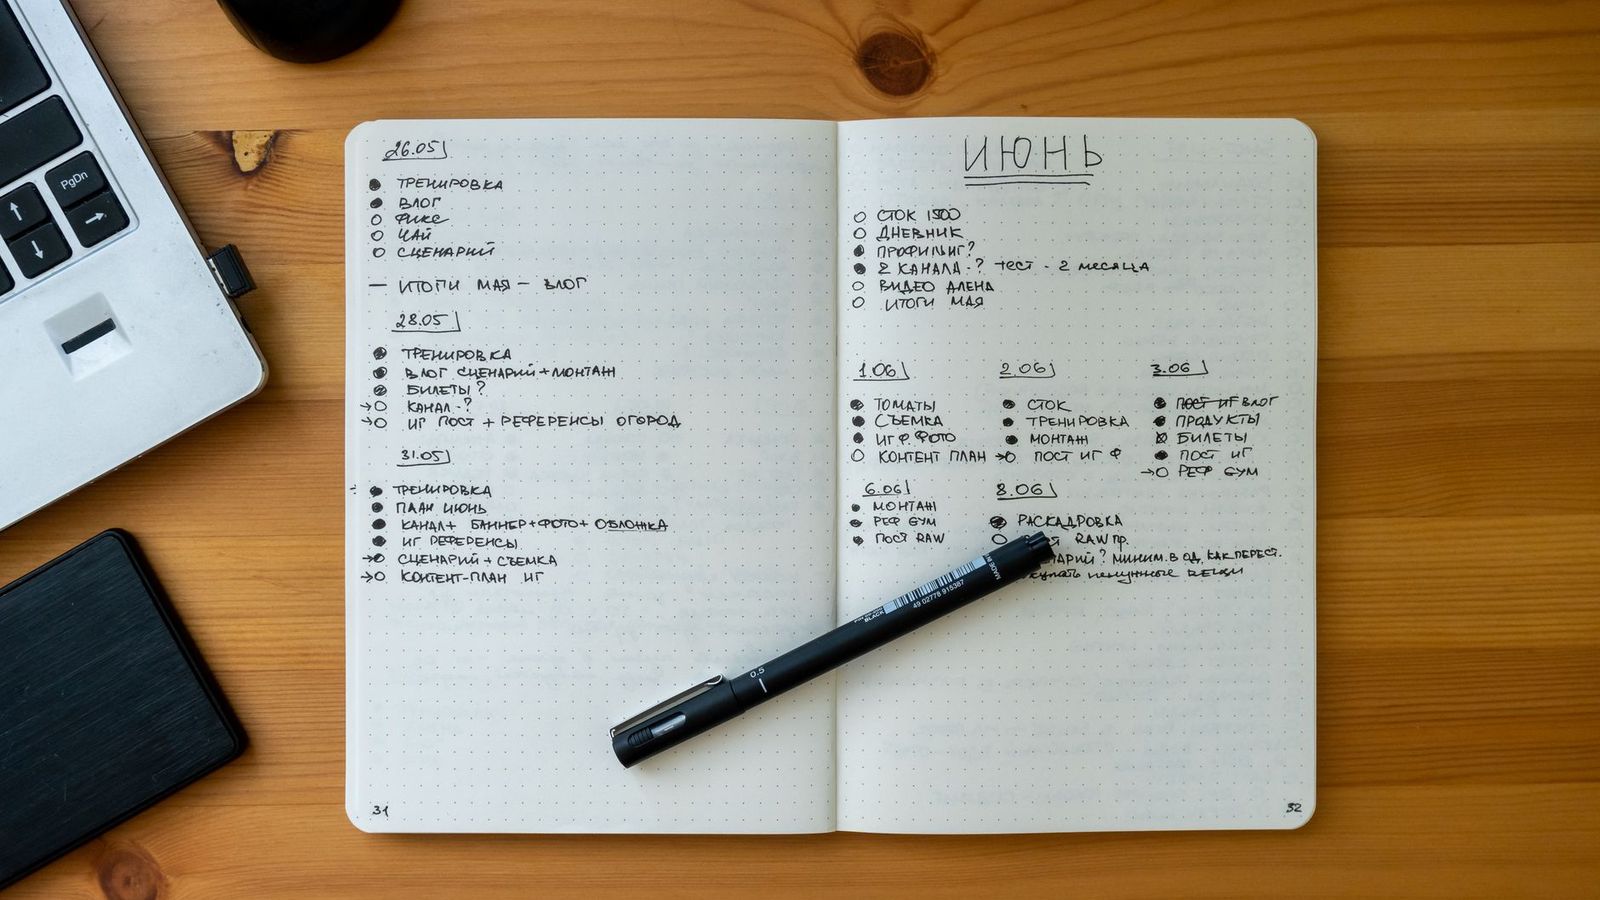 PgDn
26.05
ТРЕНИРОВКА
ВЛОГ
ФИКС
ЧАЙ
СЦЕНАРИЙ
— ИТОГИ МАЯ — ВЛОГ
28.05
ТРЕНИРОВКА
ВЛОГ СЦЕНАРИЙ+МОНТАЖ
БИЛЕТЫ?
КАНАЛ-?
ИГ ПОСТ + РЕФЕРЕНСЫ ОГОРОД
31.05
ТРЕНИРОВКА
ПЛАН ИЮНЬ
КАНАЛ+ БАННЕР+ФОТО+ ОБЛОЖКА
ИГ РЕФЕРЕНСЫ
СЦЕНАРИЙ + СЪЕМКА
КОНТЕНТ-ПЛАН ИГ
31
ИЮНЬ
СТОК 1500
ДНЕВНИК
ПРОФИЛЬ ИГ?
2 КАНАЛА-? ТЕСТ - 2 МЕСЯЦА
ВИДЕО АЛЕНА
ИТОГИ МАЯ
1.06
ТОМАТЫ
СЪЕМКА
ИГ Ф ФОТО
КОНТЕНТ ПЛАН
2.06
СТОК
ТРЕНИРОВКА
МОНТАЖ
ПОСТ ИГ Ф
3.06
ПОСТ ИГ ВЛОГ
ПРОДУКТЫ
БИЛЕТЫ
ПОСТ ИГ
РЕФ GYM
6.06
МОНТАЖ
РЕФ GYM
ПОСТ RAW
8.06
РАСКАДРОВКА
RAW ПР.
? МИНИМ. В ОД. КАК ПЕРЕСТ.
НЕНУЖНЫЕ ВЕЩИ
32
MADE IN
49 02778 915387
BLACK
0.5